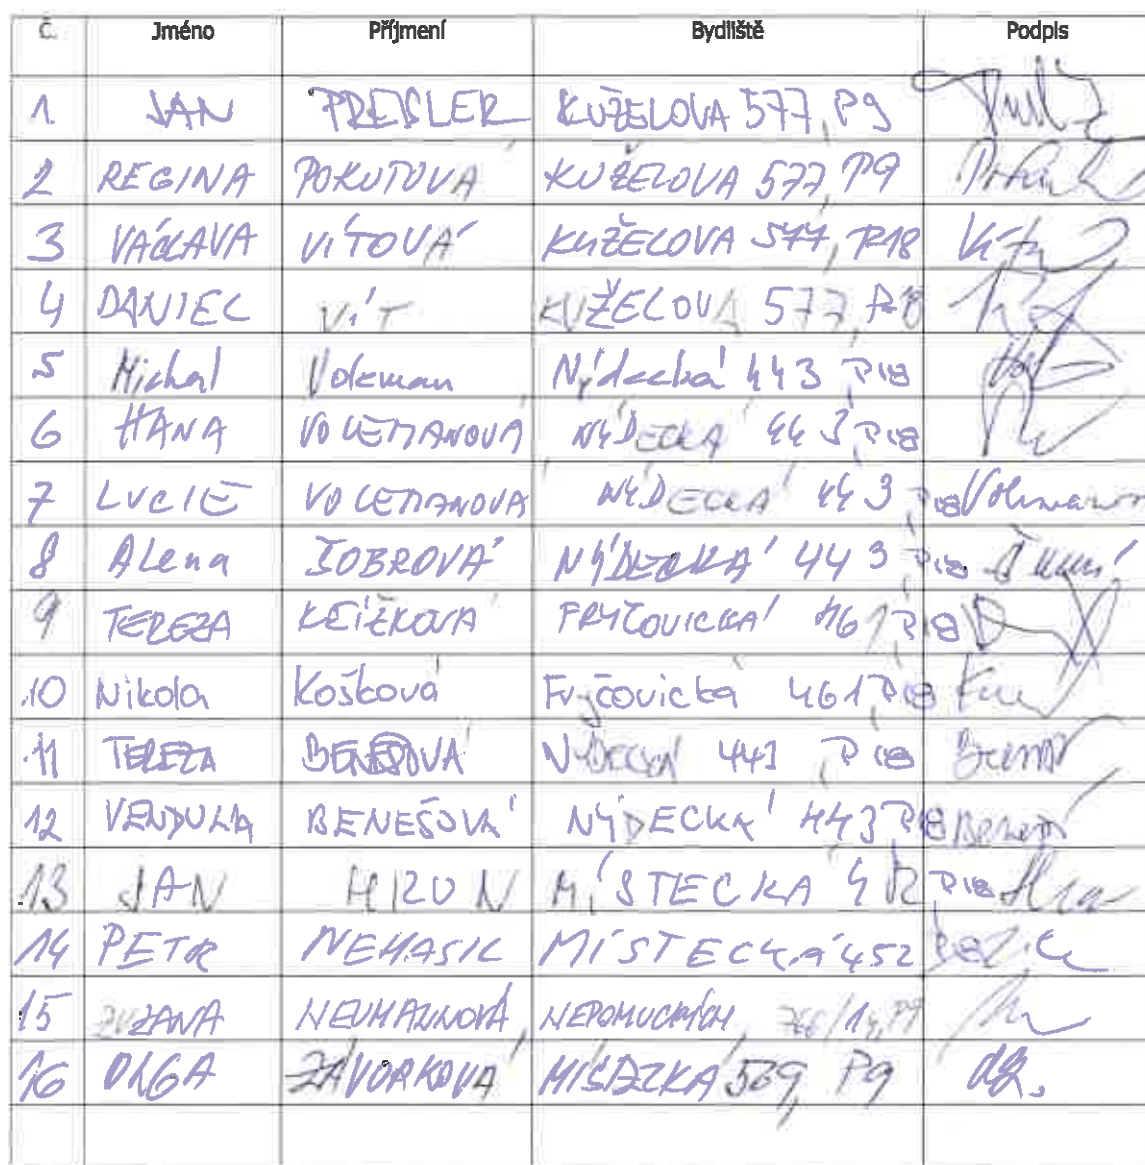 č. Jméno Příjmení Bydliště Podpis
1. JAN PREISLER KUŽELOVA 577, P9
2 REGINA POKUTOVÁ KUŽELOVA 577, P9
3 VÁCLAVA VÍTOVÁ KUŽELOVA 577, P18
4 DANIEL VÍT KUŽELOVA 577, P18
5 Michal Volcman Nýdecká 443 P18
6 HANA VOLCMANOVÁ NÝDECKÁ 443 P18
7 LUCIE VOLCMANOVÁ NÝDECKÁ 443 P18
8 Alena ŠOBROVÁ NÝDECKÁ 443 P18
9 TEREZA KŘÍŽKOVÁ FRÝČOVICKÁ 461, P18
10 Nikola Košková Fryčovická 461 P18
11 TEREZA BENEŠOVÁ NÝDECKÁ 443, P18
12 VENDULA BENEŠOVÁ NÝDECKÁ 443 P18
13 JAN MÍSTECKÁ P18
14 PETR NEHASIL MÍSTECKÁ 452 P18
15 ZUZANA NEUMANNOVÁ
16 OLGA ZÁVORKOVÁ 569, P9